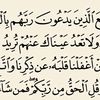 عَ ٱلَّذِينَ يَدۡعُونَ رَبَّهُم بِٱ
وَلَا تَعۡدُ عَيۡنَاكَ عَنۡهُمۡ تُرِيدُ
نۡ أَغۡفَلۡنَا قَلۡبَهُۥ عَن ذِكۡرِنَا وَٱتَّ
قُلِ ٱلۡحَقُّ مِن رَّبِّكُمۡۖ فَمَن شَآ